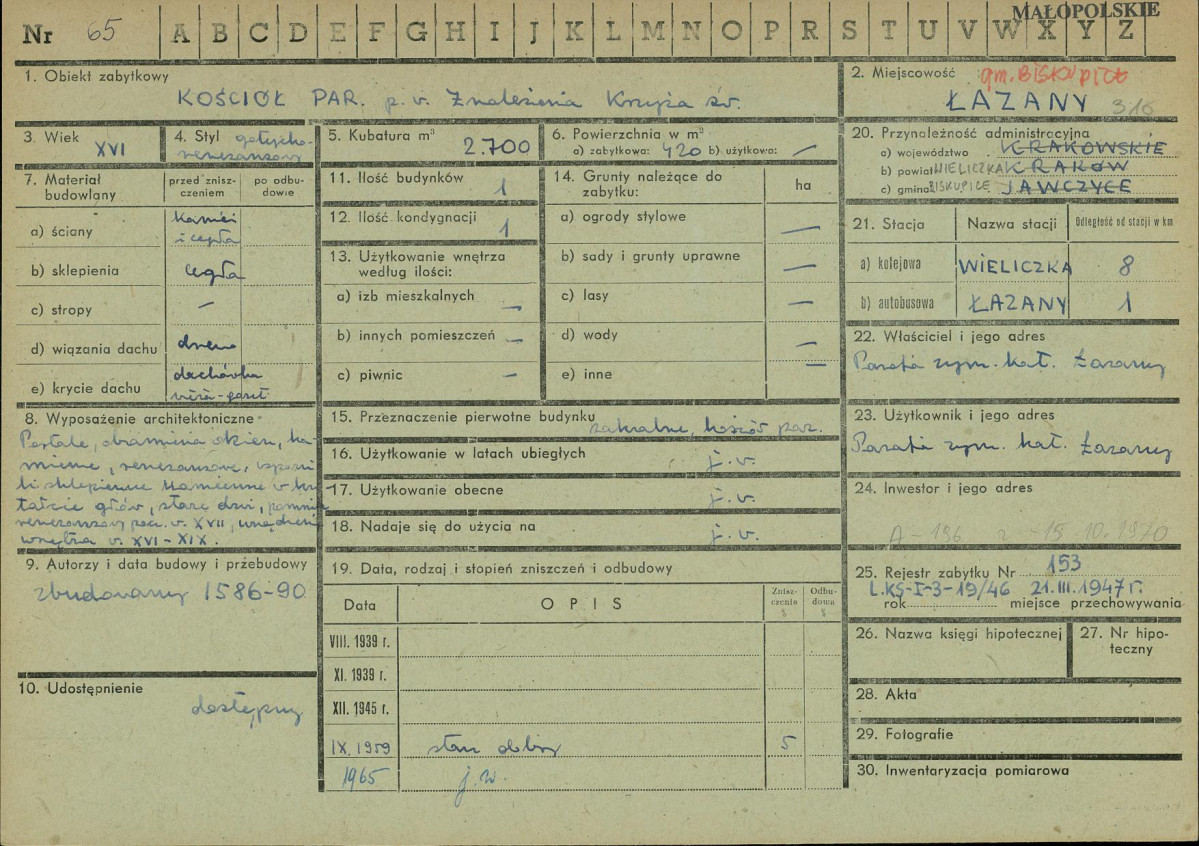 MAŁOPOLSKIE
Nr 65 A B C D E F G H I J K L M N O P R S T U V W X Y Z
1. Obiekt zabytkowy
KOŚCIÓŁ PAR. p. w. Znalezienia Krzyża św.
2. Miejscowość gm. BISKUPICE
ŁAZANY 316
3. Wiek XVI
4. Styl gotycko-
renesansowy
5. Kubatura m³ 2.700
6. Powierzchnia w m²
a) zabytkowa: 420 b) użytkowa: —
7. Materiał budowlany
przed znisz-
czeniem
po odbu-
dowie
a) ściany kamień
i cegła
b) sklepienia cegła
c) stropy —
d) wiązania dachu drewno
e) krycie dachu dachówka
wieża-gont
8. Wyposażenie architektoniczne
Portale, obramienia okien, ka-
mienne, renesansowe, wsporni-
ki sklepienne kamienne w ksz-
tałcie głów, stare drzwi, pomnik
renesansowy pocz. w. XVII, urządzenie
wnętrza w. XVI-XIX.
9. Autorzy i data budowy i przebudowy
zbudowany 1586-90
10. Udostępnienie
dostępny
11. Ilość budynków 1
12. Ilość kondygnacji 1
13. Użytkowanie wnętrza
według ilości:
a) izb mieszkalnych —
b) innych pomieszczeń —
c) piwnic —
14. Grunty należące do
zabytku: ha
a) ogrody stylowe —
b) sady i grunty uprawne —
c) lasy —
d) wody —
e) inne —
15. Przeznaczenie pierwotne budynku
sakralne, kościół par.
16. Użytkowanie w latach ubiegłych
j. w.
17. Użytkowanie obecne
j. w.
18. Nadaje się do użycia na
j. w.
19. Data, rodzaj i stopień zniszczeń i odbudowy
Data OPIS Znisz-
czenia
% Odbu-
dowa
%
VIII. 1939 r.
XI. 1939 r.
XII. 1945 r.
IX. 1959 stan dobry 5
1965 j. w.
20. Przynależność administracyjna
a) województwo KRAKOWSKIE
b) powiat WIELICZKA KRAKÓW
c) gmina BISKUPICE JAWCZYCE
21. Stacja Nazwa stacji Odległość od stacji w km
a) kolejowa WIELICZKA 8
b) autobusowa ŁAZANY 1
22. Właściciel i jego adres
Parafia rzym. kat. Łazany
23. Użytkownik i jego adres
Parafia rzym. kat. Łazany
24. Inwestor i jego adres
A-196 z -15.10.1970
25. Rejestr zabytku Nr 153
L.KS-I-3-19/46 21.III.1947r.
rok miejsce przechowywania
26. Nazwa księgi hipotecznej
27. Nr hipo-
teczny
28. Akta
29. Fotografie
30. Inwentaryzacja pomiarowa